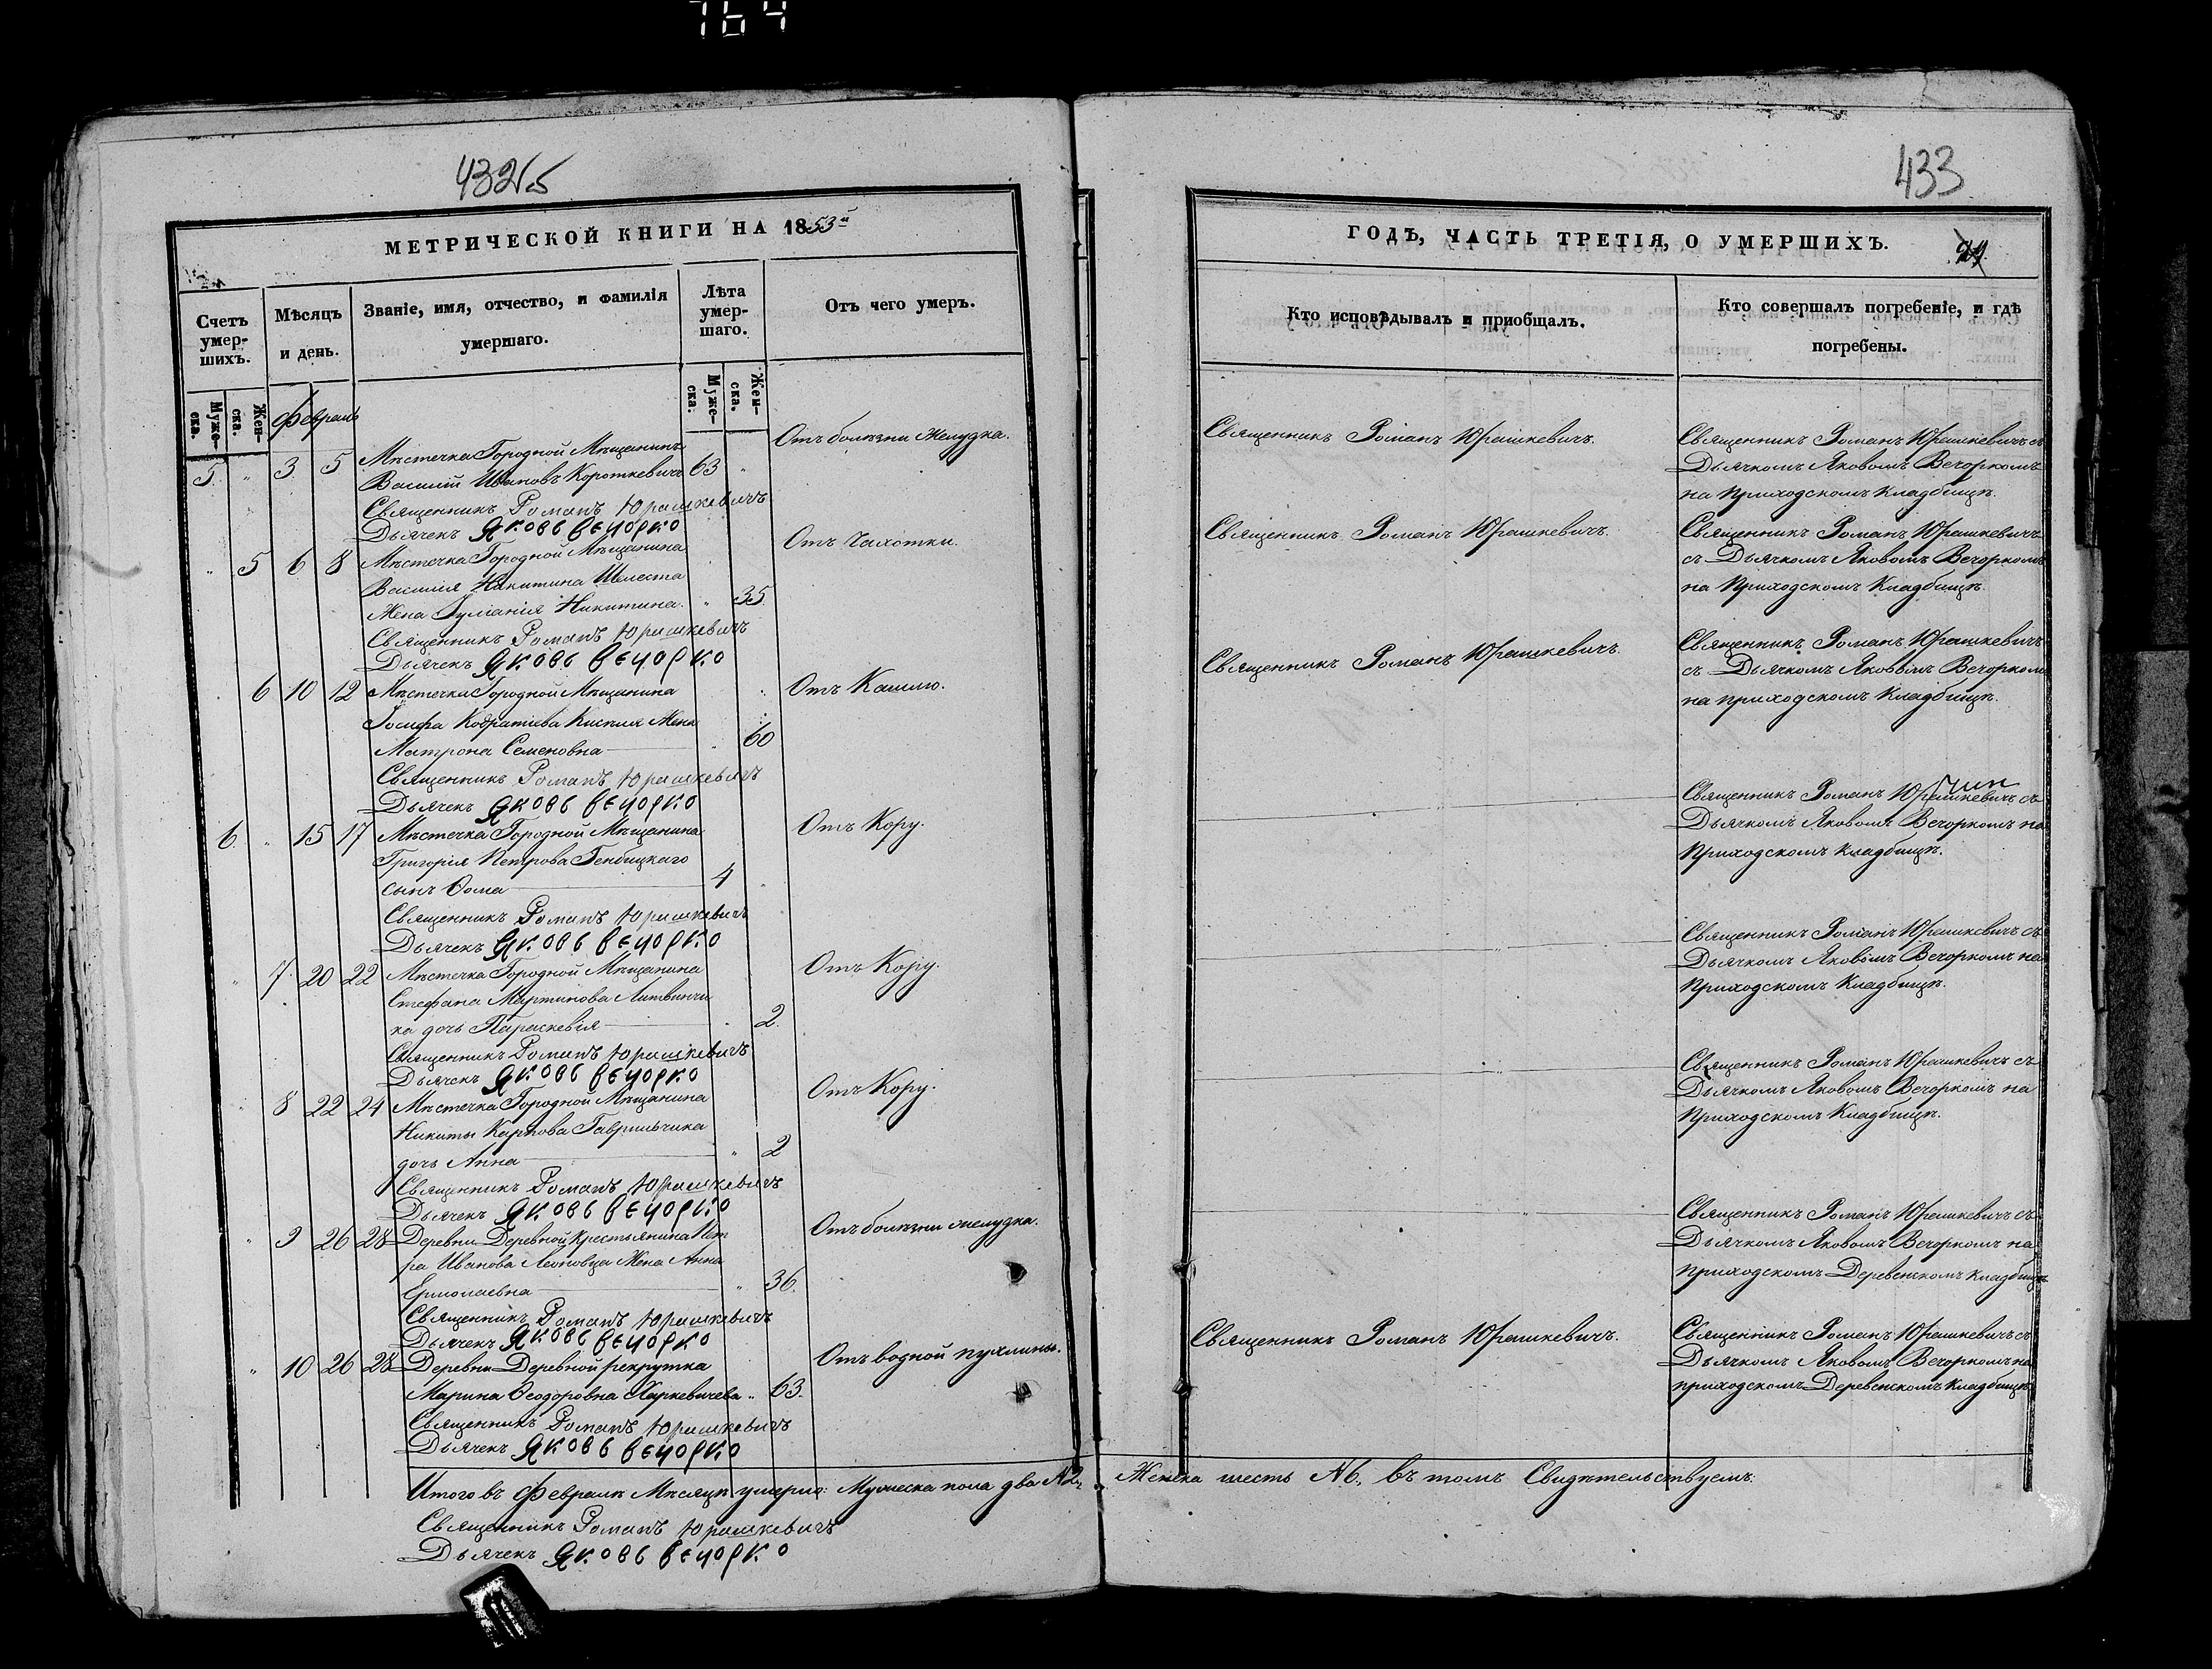 764
432об
МЕТРИЧЕСКОЙ КНИГИ НА 1853й
Счетъ умер-шихъ.
Муже-ска.
Жен-ска.
Мѣсяцъ и день.
Званіе, имя, отчество, и фамилія умершаго.
Лѣта умер-шаго.
Муже-ска.
Жен-ска.
Отъ чего умеръ.
Февраль
5 " 3 5 Мѣстечка Городной Мѣщанинъ
Василій Ивановъ Короткевичъ 63 "
Отъ болѣзни Желудка.
Священникъ Романъ Юрашкевичъ
Дьячекъ Яковъ Вечорко
" 5 6 8 Мѣстечка Городной Мѣщанина
Василія Никитина Шелеста
Жена Гуліанія Никитина. " 35
Отъ Чахотки.
Священникъ Романъ Юрашкевичъ
Дьячекъ Яковъ Вечорко
" 6 10 12 Мѣстечка Городной Мѣщанина
Іосифа Кодратіева Киселя Жена
Матрона Семеновна " 60
Отъ Кашлю.
Священникъ Романъ Юрашкевичъ
Дьячекъ Яковъ Вечорко
6 " 15 17 Мѣстечка Городной Мѣщанина
Григорія Петрова Генбицкаго
сынъ Ѳома 4 "
Отъ Кору.
Священникъ Романъ Юрашкевичъ
Дьячекъ Яковъ Вечорко
" 7 20 22 Мѣстечка Городной Мѣщанина
Стефана Мартинова Литвинчи
ка дочь Параскевія " 2.
Отъ Кору.
Священникъ Романъ Юрашкевичъ
Дьячекъ Яковъ Вечорко
" 8 22 24 Мѣстечка Городной Мѣщанина
Никиты Карпова Гаврильчика
дочь Анна " 2
Отъ Кору.
Священникъ Романъ Юрашкевичъ
Дьячекъ Яковъ Вечорко
" 9 26 28 Деревни Деревной Крестьянина Пет
ра Иванова Леоновца Жена Анна
Ермолаевна " 36.
Отъ болѣзни желудка.
Священникъ Романъ Юрашкевичъ
Дьячекъ Яковъ Вечорко
" 10 26 28 Деревни Деревной рекрутка
Марина Ѳеодоровна Харкевичева " 63.
Отъ водной пухлины.
Священникъ Романъ Юрашкевичъ
Дьячекъ Яковъ Вечорко
Итого въ Февралѣ Мѣсяцѣ умерло: Мужеска пола два N2,
Священникъ Романъ Юрашкевичъ
Дьячекъ Яковъ Вечорко
433
ГОДЪ, ЧАСТЬ ТРЕТІЯ, О УМЕРШИХЪ.
Кто исповѣдывалъ и приобщалъ.
Кто совершалъ погребеніе, и гдѣ погребены.
Священникъ Романъ Юрашкевичъ.
Священникъ Романъ Юрашкевичъ съ
Дьячкомъ Яковомъ Вечоркомъ
на Приходскомъ Кладбищѣ.
Священникъ Романъ Юрашкевичъ.
Священникъ Романъ Юрашкевичъ
съ Дьячкомъ Яковомъ Вечоркомъ
на Приходскомъ Кладбищѣ.
Священникъ Романъ Юрашкевичъ.
Священникъ Романъ Юрашкевичъ
съ Дьячкомъ Яковомъ Вечоркомъ
на приходскомъ Кладбищѣ.
Священникъ Романъ Юрашкевичъ съ
Дьячкомъ Яковомъ Вечоркомъ на
Приходскомъ кладбищѣ.
Священникъ Романъ Юрашкевичъ съ
Дьячкомъ Яковомъ Вечоркомъ на
Приходскомъ Кладбищѣ.
Священникъ Романъ Юрашкевичъ съ
Дьячкомъ Яковомъ Вечоркомъ на
Приходскомъ Кладбищѣ.
Священникъ Романъ Юрашкевичъ съ
Дьячкомъ Яковомъ Вечоркомъ на
приходскомъ Деревенскомъ кладбищѣ
Священникъ Романъ Юрашкевичъ.
Священникъ Романъ Юрашкевичъ съ
Дьячкомъ Яковомъ Вечоркомъ на
приходскомъ Деревенскомъ Кладбищѣ
Женска шесть N6, въ томъ Свидѣтельствуемъ: